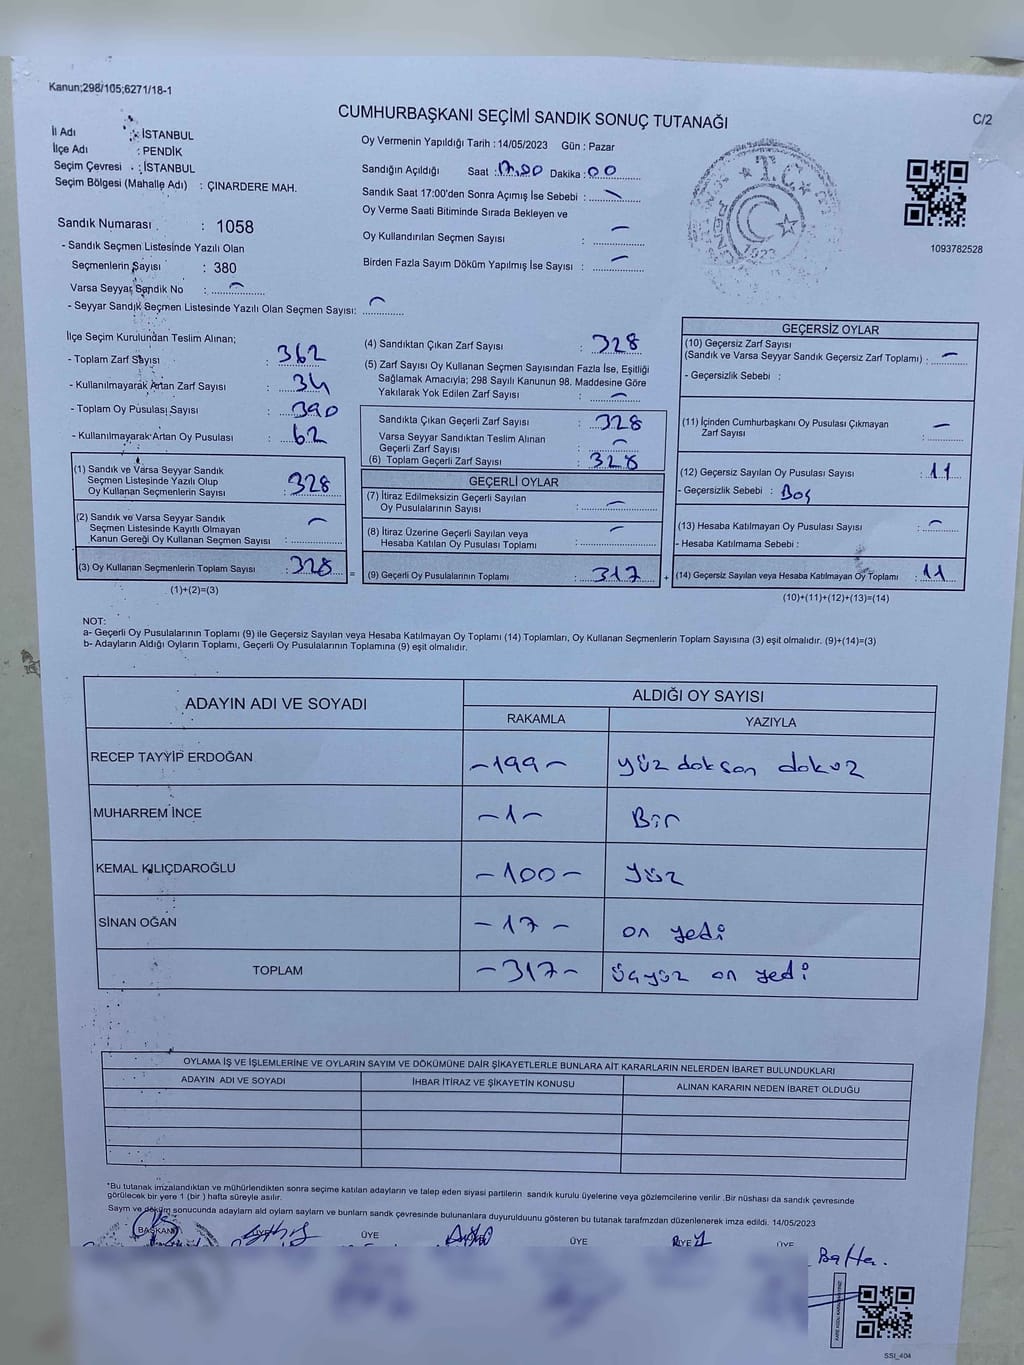 Kanun;298/105;6271/18-1
CUMHURBAŞKANI SEÇİMİ SANDIK SONUÇ TUTANAĞI
C/2
İl Adı : İSTANBUL
İlçe Adı : PENDİK
Seçim Çevresi : İSTANBUL
Seçim Bölgesi (Mahalle Adı) : ÇINARDERE MAH.
Oy Vermenin Yapıldığı Tarih : 14/05/2023 Gün : Pazar
Sandığın Açıldığı Saat : 17.00 Dakika : 00
Sandık Saat 17:00'den Sonra Açımış İse Sebebi :
Oy Verme Saati Bitiminde Sırada Bekleyen ve
Oy Kullandırılan Seçmen Sayısı : —
Birden Fazla Sayım Döküm Yapılmış İse Sayısı : —
T.C.
1923
1093782528
Sandık Numarası : 1058
- Sandık Seçmen Listesinde Yazılı Olan
Seçmenlerin Sayısı : 380
Varsa Seyyar Sandık No : —
- Seyyar Sandık Seçmen Listesinde Yazılı Olan Seçmen Sayısı: —
İlçe Seçim Kurulundan Teslim Alınan;
- Toplam Zarf Sayısı : 362
- Kullanılmayarak Artan Zarf Sayısı : 34
- Toplam Oy Pusulası Sayısı : 390
- Kullanılmayarak Artan Oy Pusulası : 62
(1) Sandık ve Varsa Seyyar Sandık
Seçmen Listesinde Yazılı Olup
Oy Kullanan Seçmenlerin Sayısı : 328
(2) Sandık ve Varsa Seyyar Sandık
Seçmen Listesinde Kayıtlı Olmayan
Kanun Gereği Oy Kullanan Seçmen Sayısı : —
(3) Oy Kullanan Seçmenlerin Toplam Sayısı : 328
(1)+(2)=(3)
(4) Sandıktan Çıkan Zarf Sayısı : 328
(5) Zarf Sayısı Oy Kullanan Seçmen Sayısından Fazla İse, Eşitliği
Sağlamak Amacıyla; 298 Sayılı Kanunun 98. Maddesine Göre
Yakılarak Yok Edilen Zarf Sayısı : —
Sandıkta Çıkan Geçerli Zarf Sayısı : 328
Varsa Seyyar Sandıktan Teslim Alınan
Geçerli Zarf Sayısı : —
(6) Toplam Geçerli Zarf Sayısı : 328
GEÇERLİ OYLAR
(7) İtiraz Edilmeksizin Geçerli Sayılan
Oy Pusulalarının Sayısı : —
(8) İtiraz Üzerine Geçerli Sayılan veya
Hesaba Katılan Oy Pusulası Toplamı : —
= (9) Geçerli Oy Pusulalarının Toplamı : 317 +
GEÇERSİZ OYLAR
(10) Geçersiz Zarf Sayısı
(Sandık ve Varsa Seyyar Sandık Geçersiz Zarf Toplamı) : —
- Geçersizlik Sebebi :
(11) İçinden Cumhurbaşkanı Oy Pusulası Çıkmayan
Zarf Sayısı : —
(12) Geçersiz Sayılan Oy Pusulası Sayısı : 11
- Geçersizlik Sebebi : Boş
(13) Hesaba Katılmayan Oy Pusulası Sayısı : —
- Hesaba Katılmama Sebebi :
(14) Geçersiz Sayılan veya Hesaba Katılmayan Oy Toplamı : 11
(10)+(11)+(12)+(13)=(14)
NOT:
a- Geçerli Oy Pusulalarının Toplamı (9) ile Geçersiz Sayılan veya Hesaba Katılmayan Oy Toplamı (14) Toplamları, Oy Kullanan Seçmenlerin Toplam Sayısına (3) eşit olmalıdır. (9)+(14)=(3)
b- Adayların Aldığı Oyların Toplamı, Geçerli Oy Pusulalarının Toplamına (9) eşit olmalıdır.
ADAYIN ADI VE SOYADI ALDIĞI OY SAYISI
RAKAMLA YAZIYLA
RECEP TAYYİP ERDOĞAN -199- yüz doksan dokuz
MUHARREM İNCE -1- Bir
KEMAL KILIÇDAROĞLU -100- Yüz
SİNAN OĞAN -17- on yedi
TOPLAM -317- üçyüz on yedi
OYLAMA İŞ VE İŞLEMLERİNE VE OYLARIN SAYIM VE DÖKÜMÜNE DAİR ŞİKAYETLERLE BUNLARA AİT KARARLARIN NELERDEN İBARET BULUNDUKLARI
ADAYIN ADI VE SOYADI İHBAR İTİRAZ VE ŞİKAYETİN KONUSU ALINAN KARARIN NEDEN İBARET OLDUĞU
*Bu tutanak imzalandıktan ve mühürlendikten sonra seçime katılan adayların ve talep eden siyasi partilerin sandık kurulu üyelerine veya gözlemcilerine verilir .Bir nüshası da sandık çevresinde
görülecek bir yere 1 (bir ) hafta süreyle asılır.
Sayım ve döküm sonucunda adaylarm ald oylarm saylarn ve bunlarm sandk çevresinde bulunanlara duyurulduunu gösteren bu tutanak tarafmzdan düzenlenerek imza edildi. 14/05/2023
BAŞKAN ÜYE ÜYE ÜYE ÜYE
SSİ_404